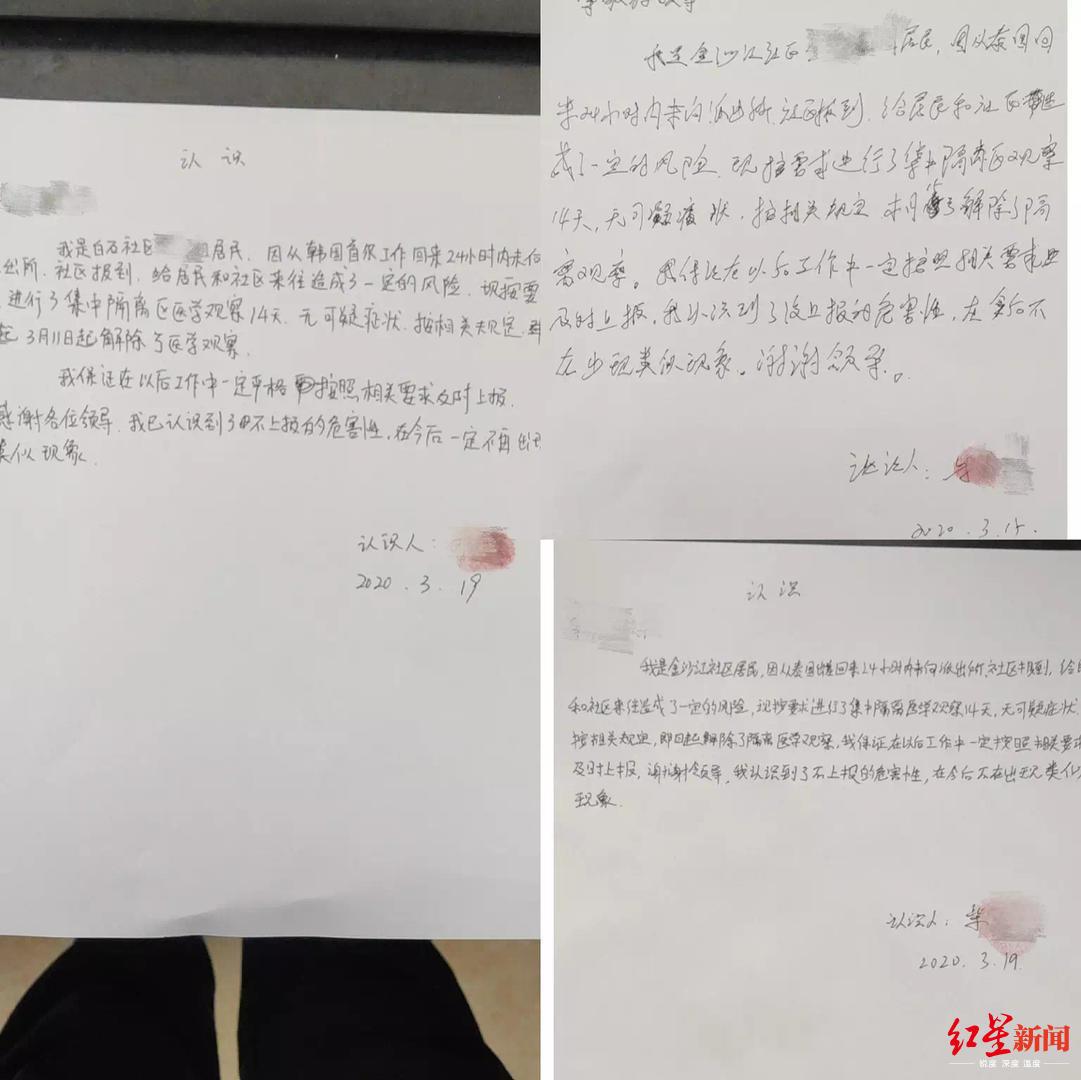 认 识
我是白石社区 居民，因从韩国首尔工作回来24小时内未向
出所、社区报到，给居民和社区来往造成了一定的风险，现按要
进行了集中隔离区医学观察14天，无可疑症状，按相关规定，
起3月11日起解除了医学观察。
我保证在以后工作中一定严格 按照相关要求及时上报，
感谢各位领导，我已认识到了 不上报的危害性，在今后一定不再出现
类似现象。
认识人：
2020.3.19
我是金沙江社区 居民，因从泰国回
来24小时内未向派出所、社区报到，给居民和社区 造
成了一定的风险，现按要求进行了集中隔离区观察
14天，无可疑症状，按相关规定 解除了隔
离观察。我保证在以后工作中一定按照相关要求
及时上报，我认识到了没上报的危害性，在 后不
在出现类似现象。谢谢领导。
认识人：
2020.3.15.
认 识
我是金沙江社区居民，因从泰国 回来24小时内未向派出所、社区报到，给
和社区来往造成了一定的风险，现按要求进行了集中隔离医学观察14天，无可疑症状
按相关规定，即日起解除了隔离医学观察，我保证在以后工作中一定按照相关要求
及时上报，谢谢领导，我认识到了不上报的危害性，在今后不在出现类似
现象。
认识人：柴
2020.3.19.
红星新闻
锐度 深度 温度